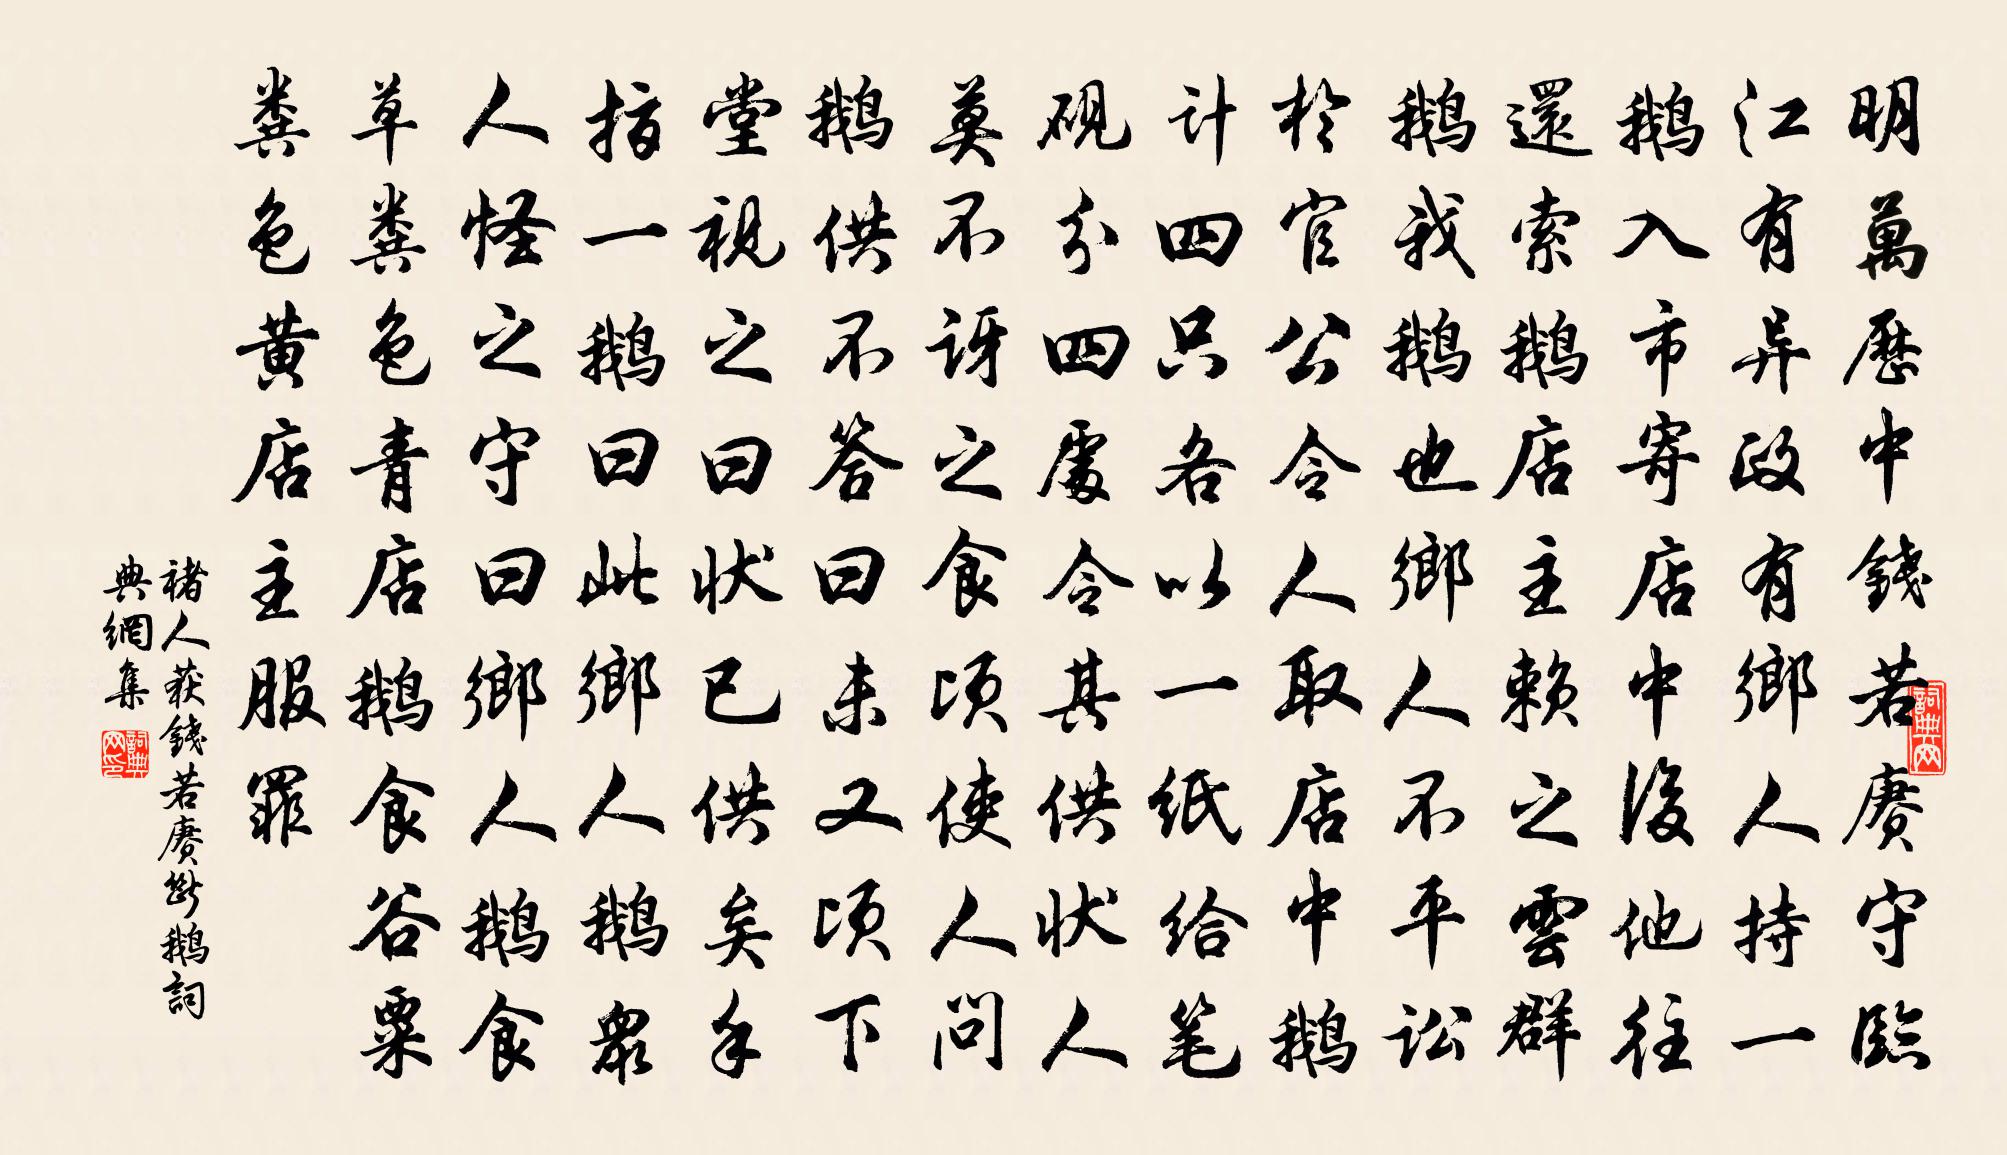 明萬歷中錢若賡守臨
江有异政有鄉人持一
鵝入市寄店中後他往
還索鵝店主賴之雲群
鵝我鵝也鄉人不平訟
於官公令人取店中鵝
計四只各以一紙給筆
硯分四處令其供狀人
莫不訝之食頃使人問
鵝供不答曰未又頃下
堂視之曰狀已供矣手
指一鵝曰此鄉人鵝眾
人怪之守曰鄉人鵝食
草糞色青店鵝食谷粟
糞色黃店主服罪
褚人获錢若賡斷鵝詞
典網集
詞典网
詞典网印